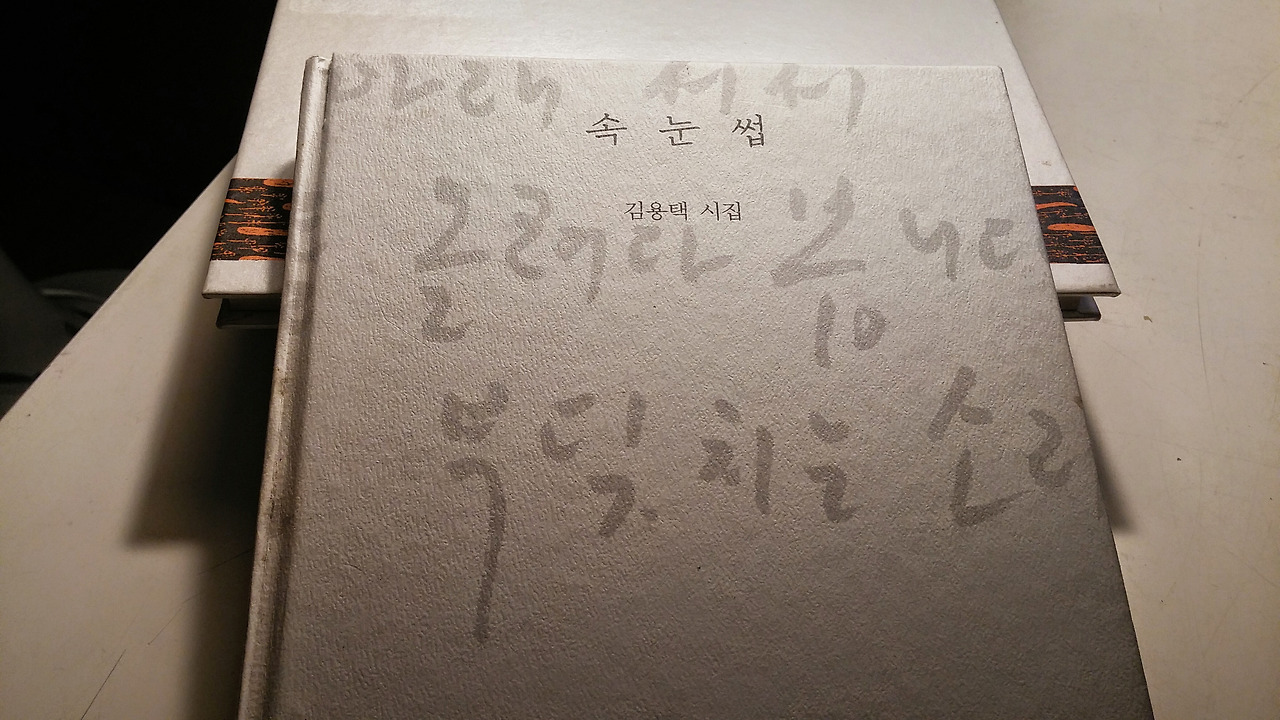 아래 서서
속눈썹
김용택 시집
올려다 봅니다
부딪치는 소리